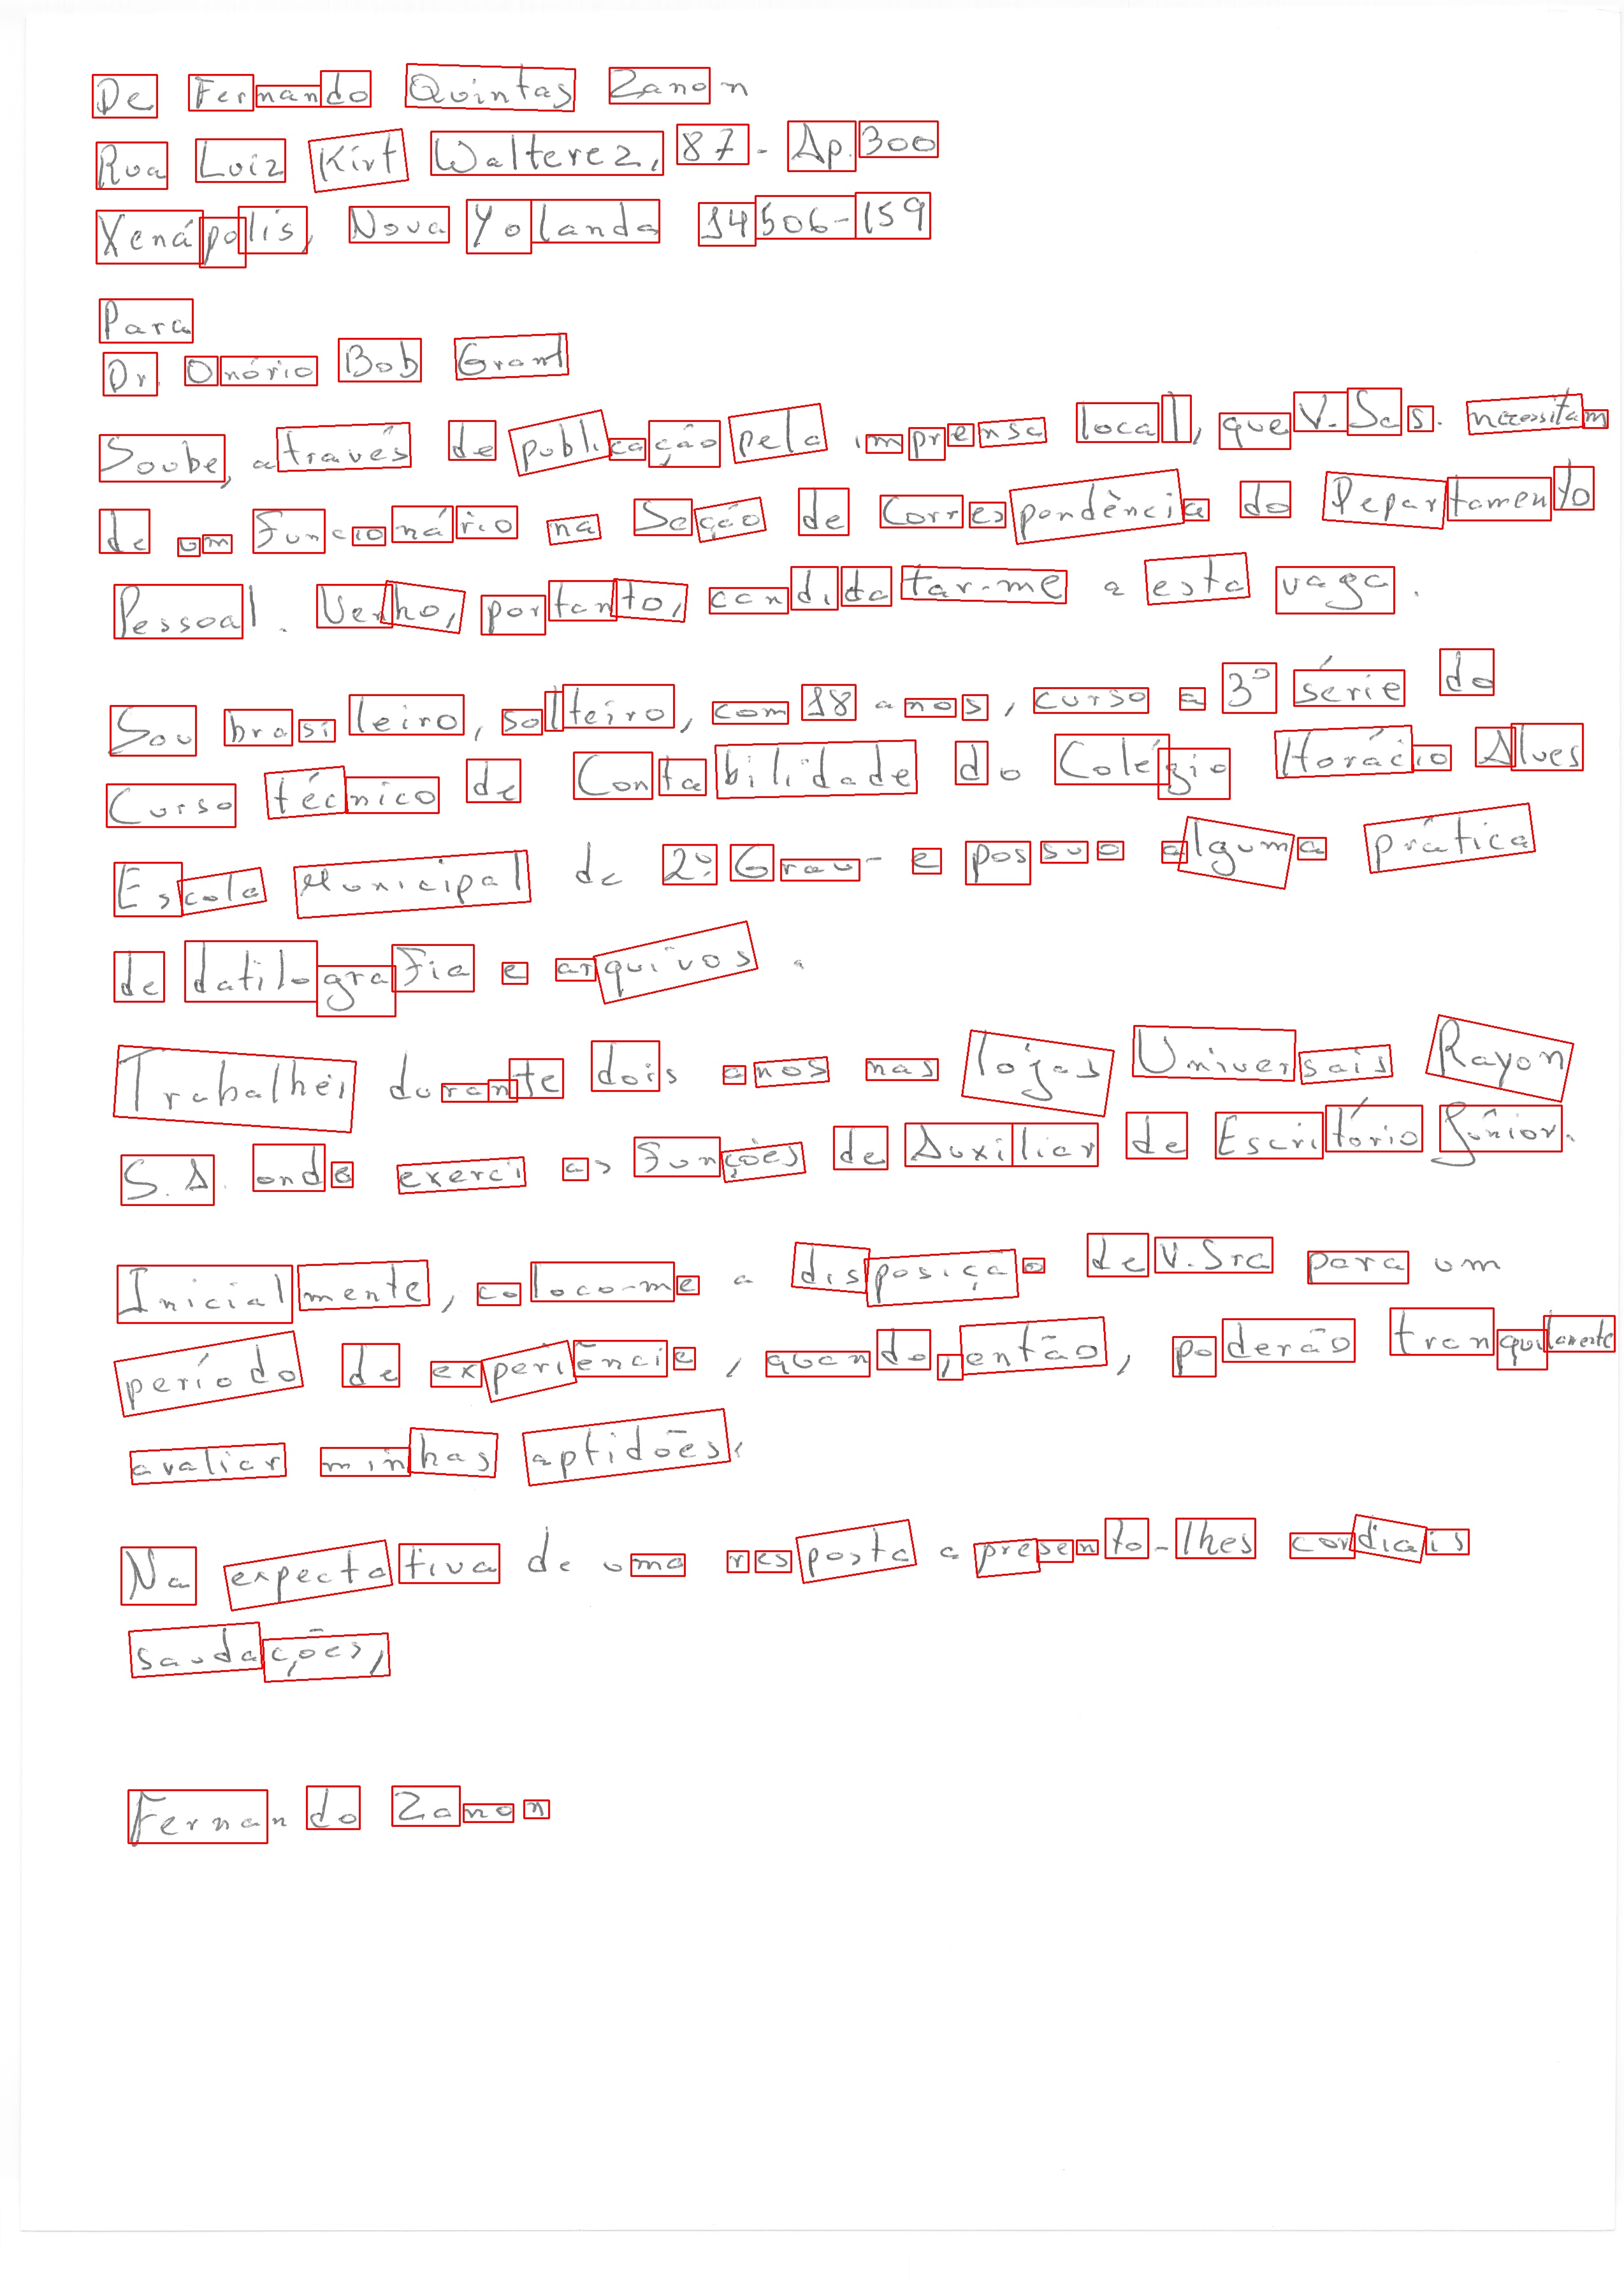 De Fernando Quintas Zanon
Rua Luiz Kirt Walterez, 87 - Ap. 300
Xenápolis, Nova Yolanda 14506-159
Para
Dr. Onório Bob Grant
Soube, através de publicação pela imprensa local, que V. Sas. necessitam
de um Funcionário na Seção de Correspondência do Departamento
Pessoal. Venho, portanto, candidatar-me a esta vaga.
Sou brasileiro, solteiro, com 18 anos, curso a 3º série do
Curso técnico de Contabilidade do Colégio Horácio Alves
Escola Municipal de 2º Grau - e possuo alguma prática
de datilografia e arquivos.
Trabalhei durante dois anos nas lojas Universais Rayon
S.A. onde exerci as Funções de Auxiliar de Escritório Júnior.
Inicialmente, coloco-me a disposição de V. Sra para um
período de experiência, quando, então, poderão tranquilamente
avaliar minhas aptidões.
Na expectativa de uma resposta apresento-lhes cordiais
saudações,
Fernando Zanon